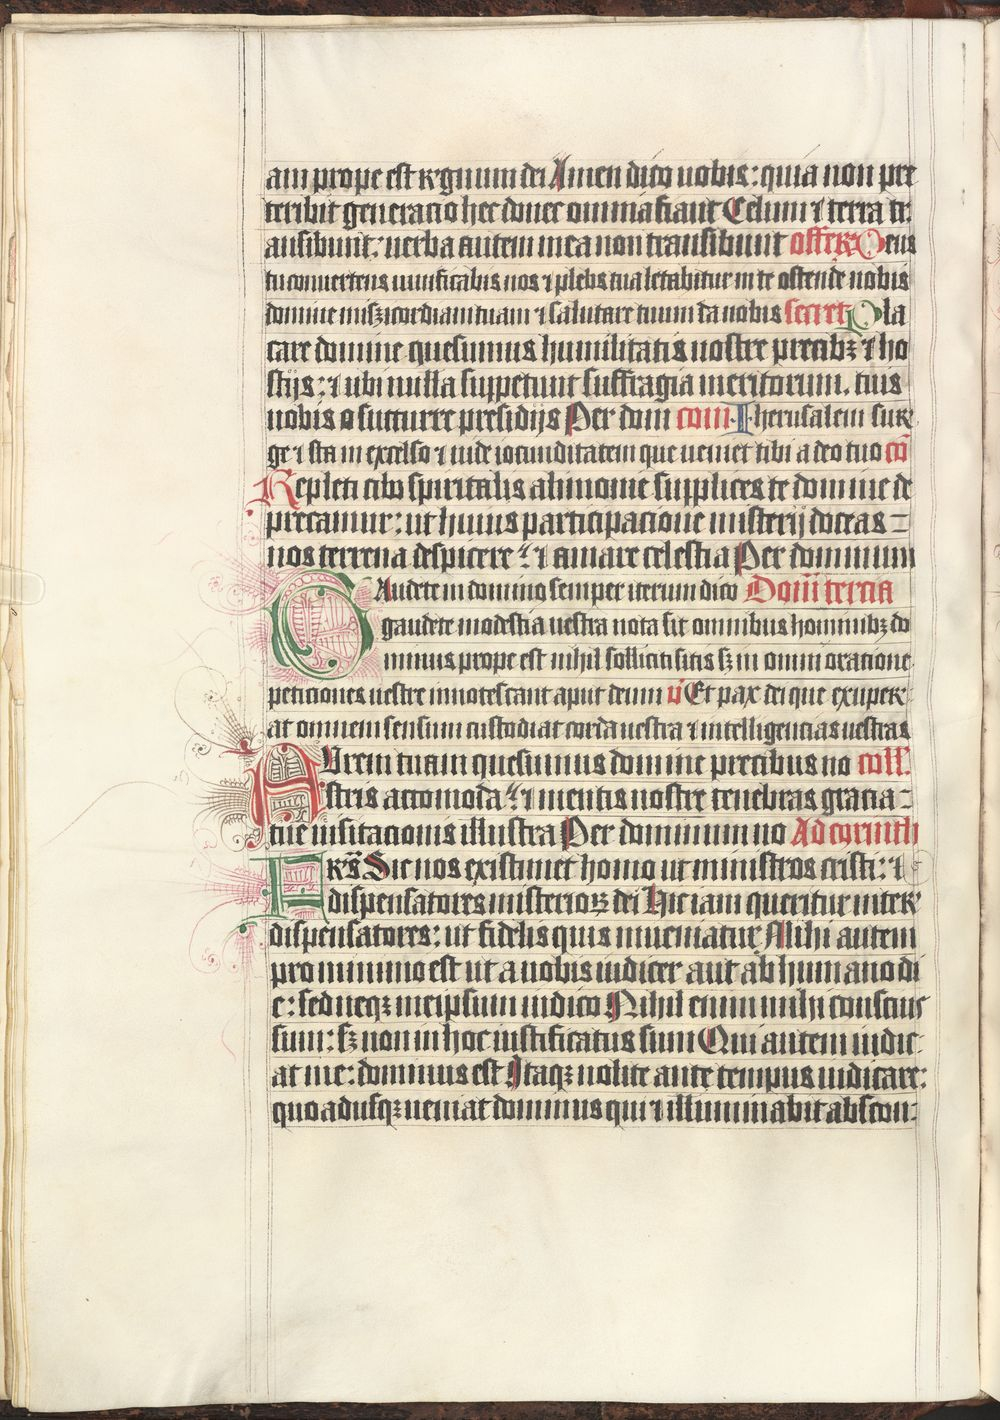 am prope est regnum dei Amen dico uobis: quia non pre
teribit generacio hec donec omnia fiant Celum ⁊ terra tr
ansibunt: uerba autem mea non transibunt offer Deus
tu conuertens uiuificabis nos ⁊ plebs tua letabitur in te ostende nobis
domine misericordiam tuam ⁊ salutare tuum da nobis secret Pla
care domine quesumus humilitatis nostre precibꝫ ⁊ ho
stijs: ⁊ ubi nulla suppetunt suffragia meritorum. tuis
nobis succurre presidijs Per dom com Iherusalem sur
ge ⁊ sta in excelso ⁊ uide iocunditatem que ueniet tibi a deo tuo cō
Repleti cibo spiritalis alimonie supplices te domine de
precamur: ut huius participacione misterij doceas
nos terrena despicere ⁊ amare celestia Per dominum
GAudete in domino semper iterum dico Dom̄ tercia
gaudete modestia uestra nota sit omnibus hominibꝫ do
minus prope est nihil solliciti sitis sꝫ in omni oratione
peticiones uestre innotescant aput deum ⱽ Et pax dei que exuper
at omnem sensum custodiat corda uestra ⁊ intelligencias uestras
AUrem tuam quesumus domine precibus no coll'
stris accomoda ⁊ mentis nostre tenebras gracia
tue uisitacionis illustra Per dominum no Ad corinth
Frꝫ̄ Sic nos existimet homo ut ministros cristi: ⁊
dispensatores misterioꝝ dei Hic iam queritur inter
dispensatores: ut fidelis quis inueniatur Mihi autem
pro minimo est ut a uobis iudicer aut ab humano di
e: sed neqꝫ meipsum iudico Nihil enim mihi conscius
sum: sꝫ non in hoc iustificatus sum Qui autem iudic
at me: dominus est Itaqꝫ nolite ante tempus iudicare:
quoadusqꝫ ueniat dominus qui ⁊ illuminabit abscon